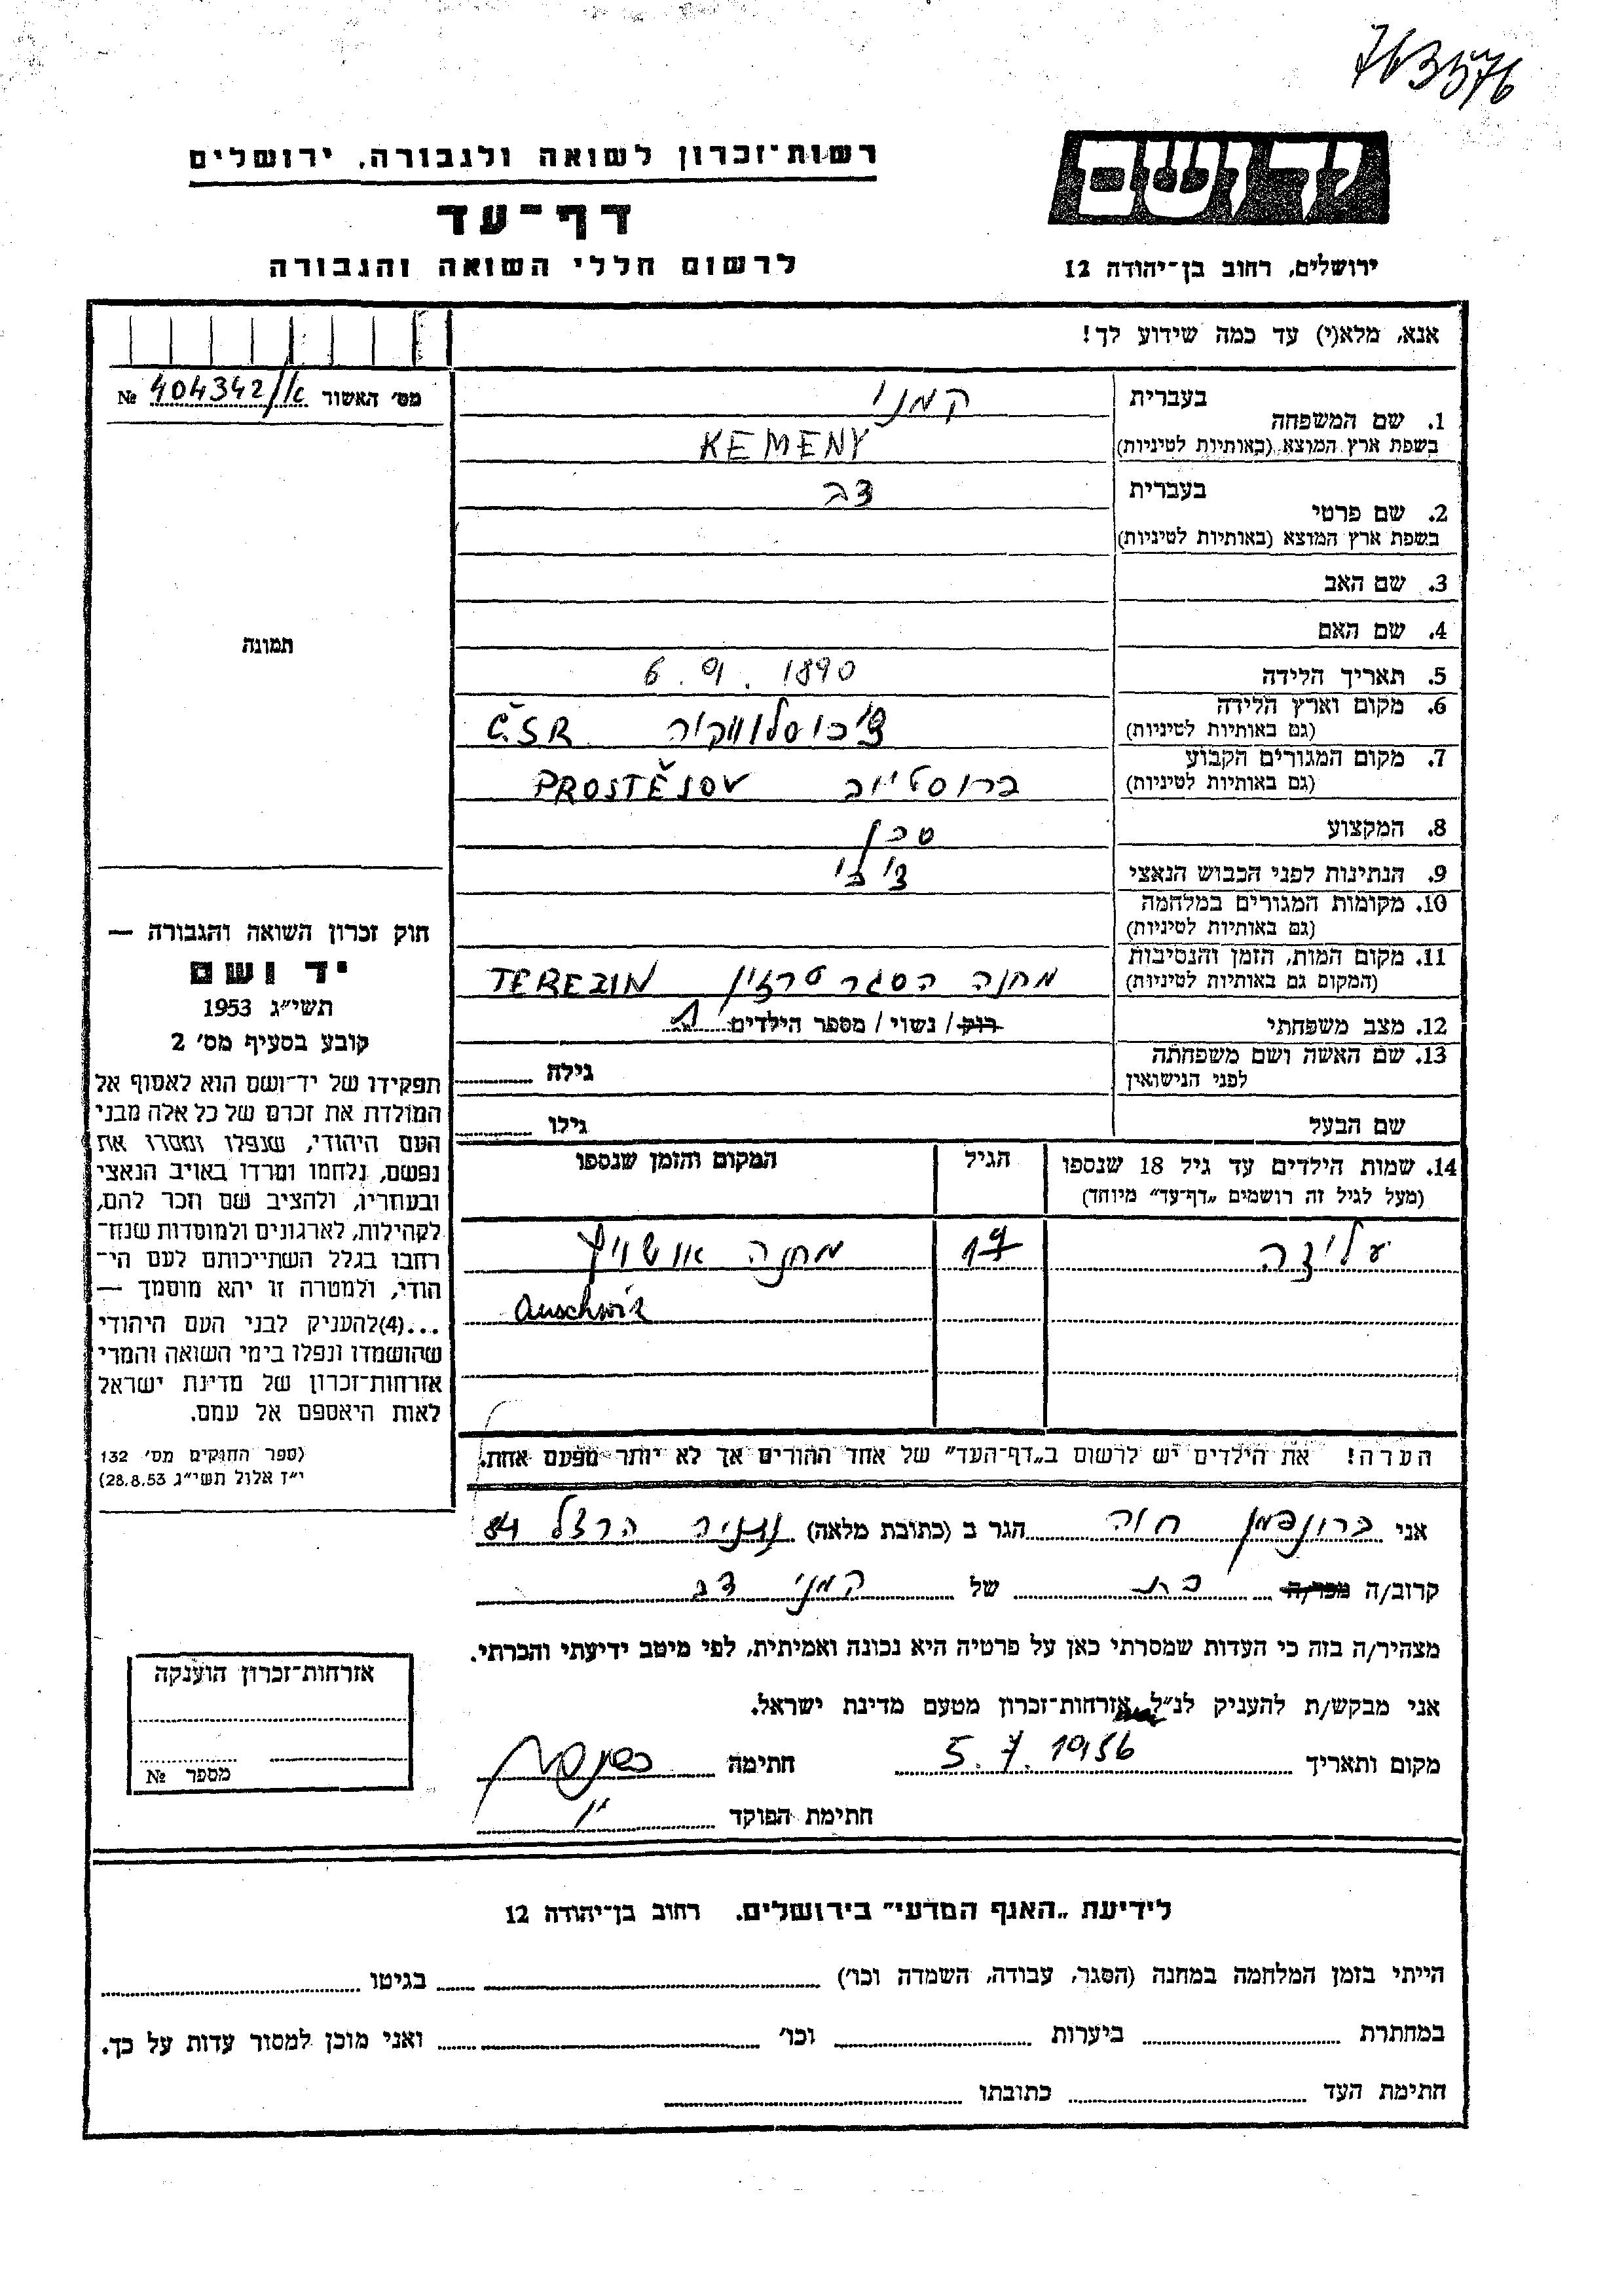 763576
רשות־זכרון לשואה ולגבורה, ירושלים
יד ושם
דף־עד
לרשום חללי השואה והגבורה
ירושלים, רחוב בן־יהודה 12
אנא, מלא(י) עד כמה שידוע לך!
מס׳ האשור 404342/א №
1. שם המשפחה בעברית קמני
בשפת ארץ המוצא (באותיות לטיניות) KEMENY
2. שם פרטי בעברית דב
בשפת ארץ המוצא (באותיות לטיניות)
3. שם האב
4. שם האם
תמונה
5. תאריך הלידה 6.9.1890
6. מקום וארץ הלידה (גם באותיות לטיניות) צ׳כוסלווקיה Č.S.R
7. מקום המגורים הקבוע (גם באותיות לטיניות) ברוסטיוב PROSTĚJOV
8. המקצוע סוכן
9. הנתינות לפני הכבוש הנאצי צ׳כי
10. מקומות המגורים במלחמה (גם באותיות לטיניות)
11. מקום המות, הזמן והנסיבות (המקום גם באותיות לטיניות) מחנה הסגר טרזין TEREZIN
12. מצב משפחתי רוק / נשוי / מספר הילדים
13. שם האשה ושם משפחתה לפני הנישואין גילה
שם הבעל גילו
14. שמות הילדים עד גיל 18 שנספו הגיל המקום והזמן שנספו
(מעל לגיל זה רושמים „דף־עד״ מיוחד)
עליזה 17 מחנה אושויץ
Auschwitz
הערה! את הילדים יש לרשום ב„דף־העד״ של אחד ההורים אך לא יותר מפעם אחת.
חוק זכרון השואה והגבורה —
יד ושם
תשי״ג 1953
קובע בסעיף מס׳ 2
תפקידו של יד־ושם הוא לאסוף אל
המולדת את זכרם של כל אלה מבני
העם היהודי, שנפלו ומסרו את
נפשם, נלחמו ומרדו באויב הנאצי
ובעוזריו, ולהציב שם וזכר להם,
לקהילות, לארגונים ולמוסדות שנח־
רבו בגלל השתייכותם לעם הי־
הודי, ולמטרה זו יהא מוסמך —
...(4)להעניק לבני העם היהודי
שהושמדו ונפלו בימי השואה והמרי
אזרחות־זכרון של מדינת ישראל
לאות היאספם אל עמם.
(ספר החוקים מס׳ 132
י״ז אלול תשי״ג 28.8.53)
אני ברונפמן חוה הגר ב (כתובת מלאה) הרצל 84
קרוב/ה מכר/ה בת של קמני דב
מצהיר/ה בזה כי העדות שמסרתי כאן על פרטיה היא נכונה ואמיתית, לפי מיטב ידיעתי והכרתי.
אני מבקש/ת להעניק לנ״ל אזרחות־זכרון מטעם מדינת ישראל.
מקום ותאריך 5.7.1956 חתימה
חתימת הפוקד
אזרחות־זכרון הוענקה
מספר №
לידיעת „האגף המדעי״ בירושלים. רחוב בן־יהודה 12
הייתי בזמן המלחמה במחנה (הסגר, עבודה, השמדה וכו׳) בגיטו
במחתרת ביערות וכו׳ ואני מוכן למסור עדות על כך.
חתימת העד כתובתו